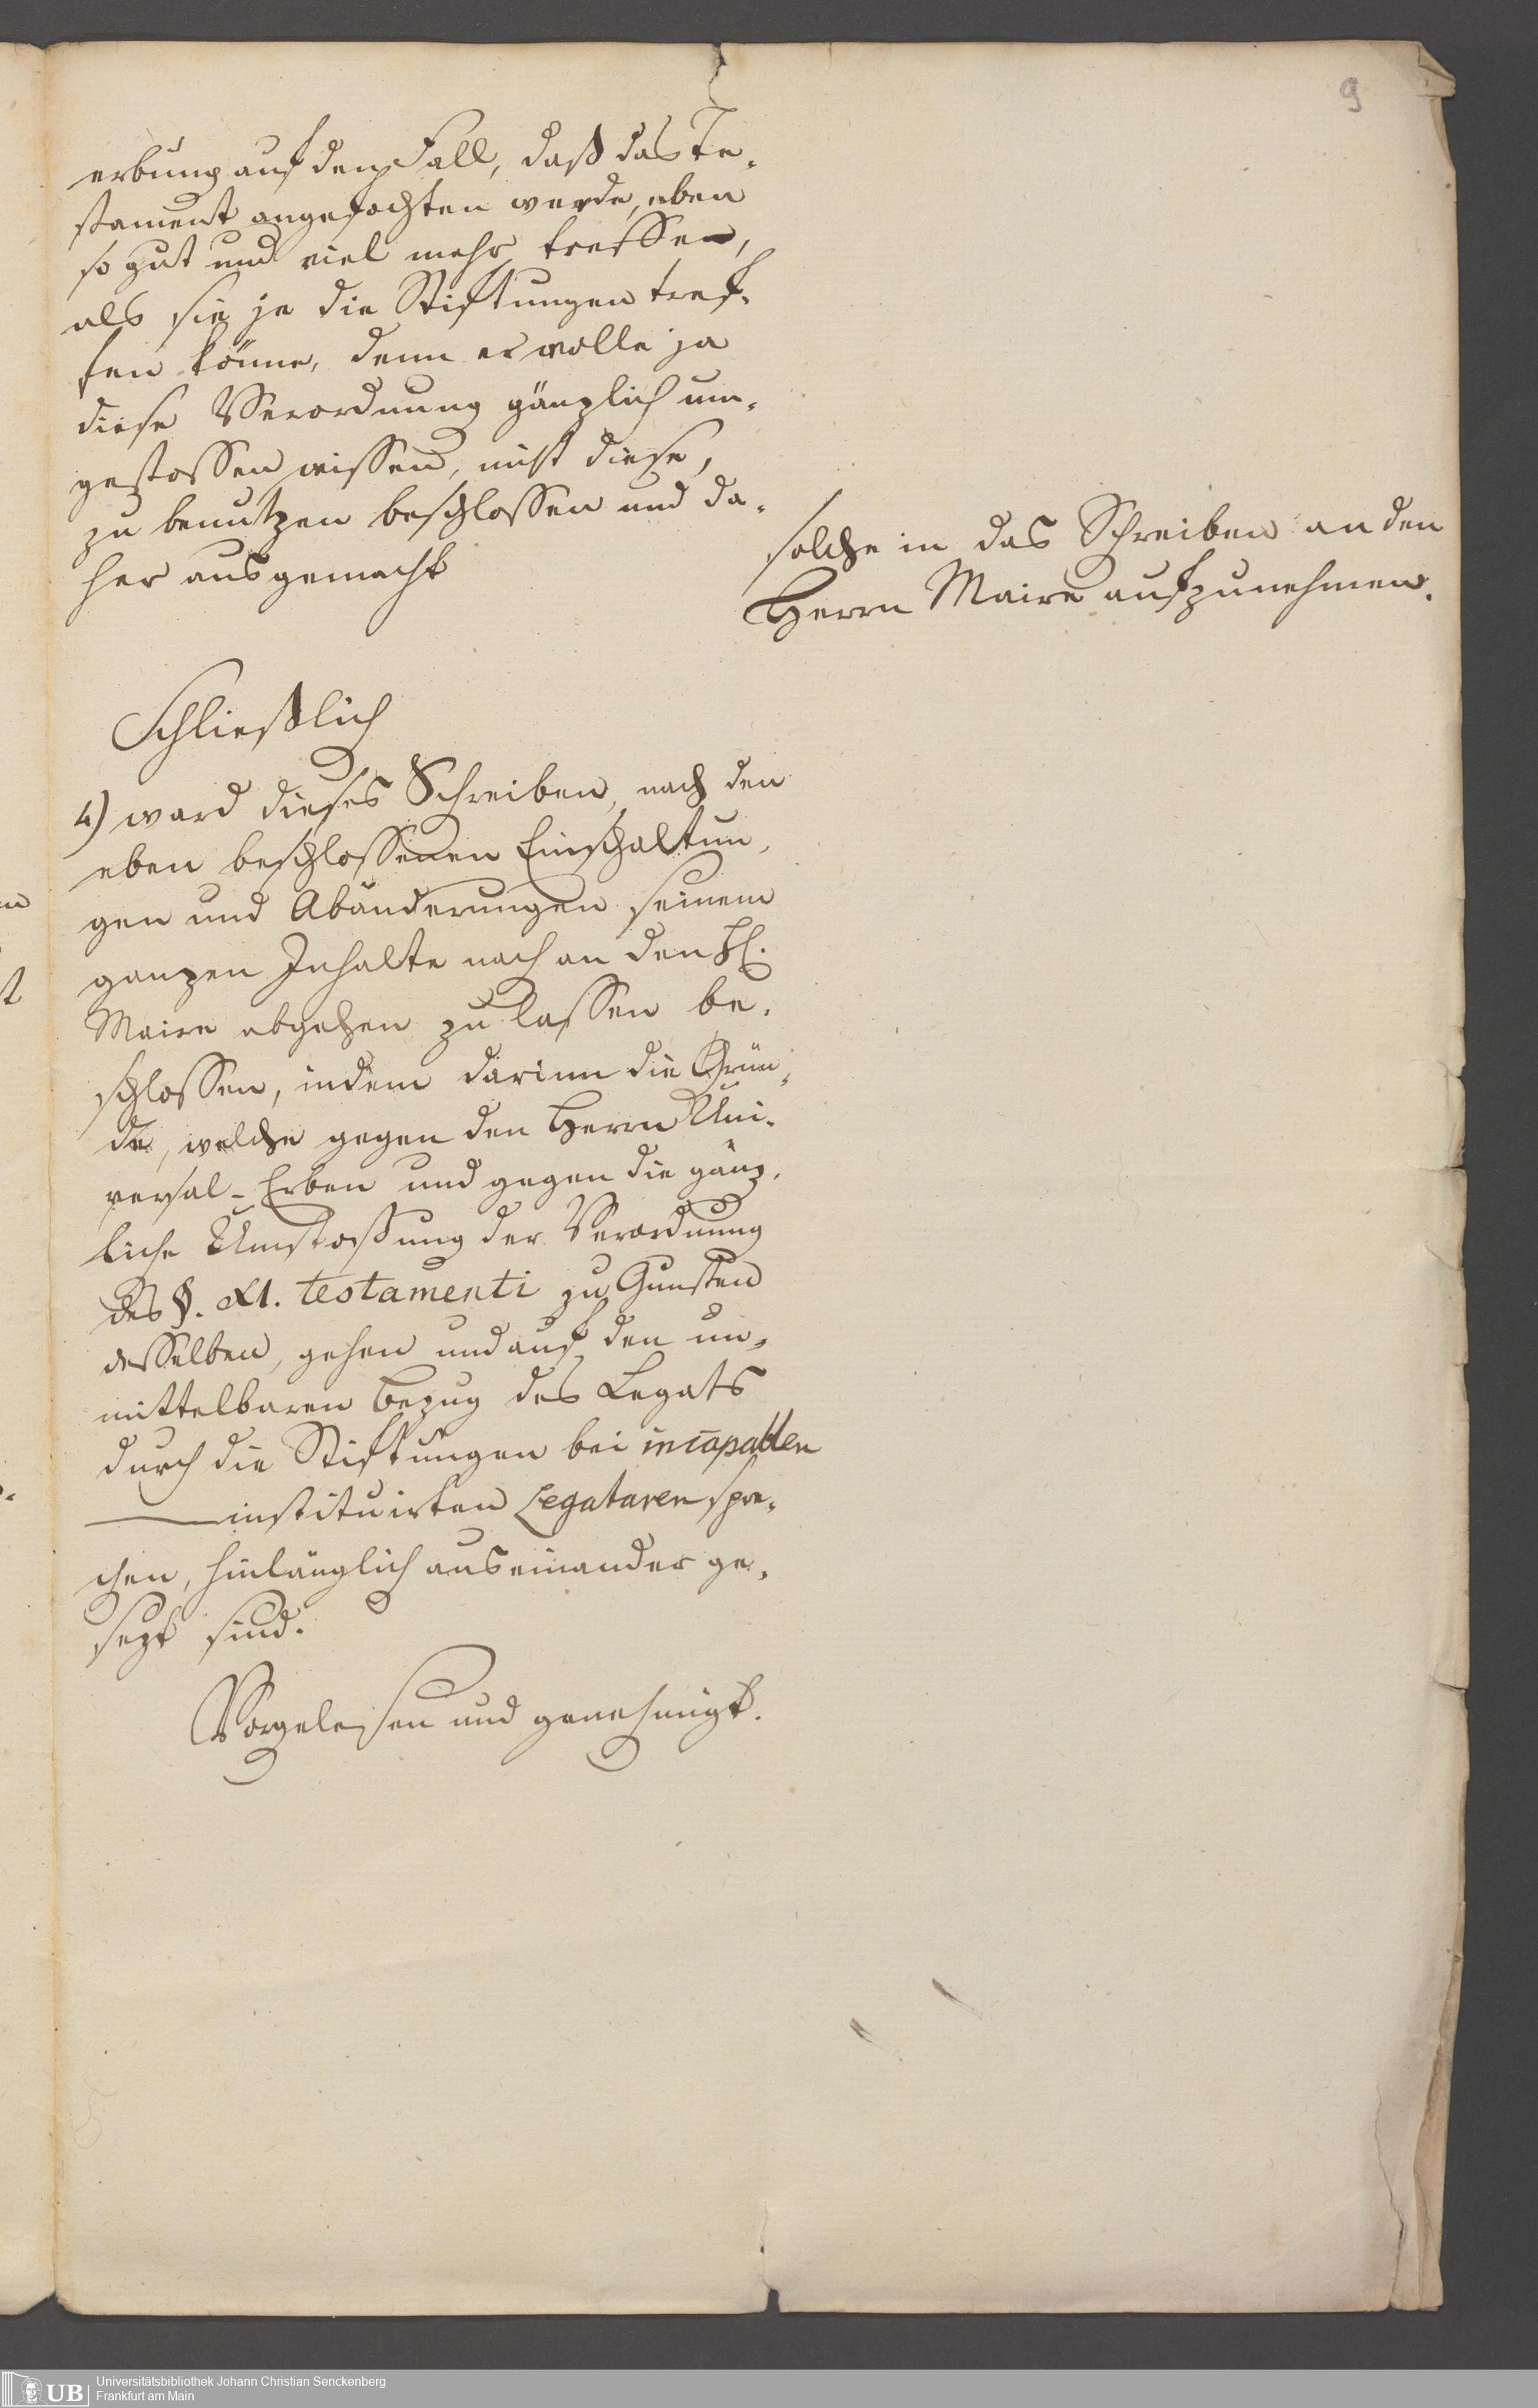 9
erbung auf den Fall, daß das Te-
stament angefochten werde, eben
so gut und viel mehr treffen,
als sie je die Stiftungen tref-
fen könne, denn er wolle ja
diese Verordnung gänzlich um-
gestossen wissen, nicht diese,
zu benutzen beschlossen und da-
her ausgemacht
solche in das Schreiben an den
Herrn Maire aufzunehmen.
Schließlich
4) ward dieses Schreiben, nach den
eben beschlossenen Einschaltun-
gen und Abänderungen seinem
ganzen Inhalte nach an den H.
Maire abgehen zu lassen be-
schlossen, indem darinn die Grün-
de, welche gegen den Herrn Uni-
versal-Erben und gegen die gänz-
liche Umstoßung der Verordnung
des §. XI. testamenti zu Gunsten
desselben, gehen und auf den un-
mittelbaren Bezug des Legats
durch die Stiftungen bei incapablen
instituirten Legataren spre-
chen, hinlänglich auseinander ge-
sezt sind.
Vorgelesen und genehmigt.
UB Universitätsbibliothek Johann Christian Senckenberg
Frankfurt am Main